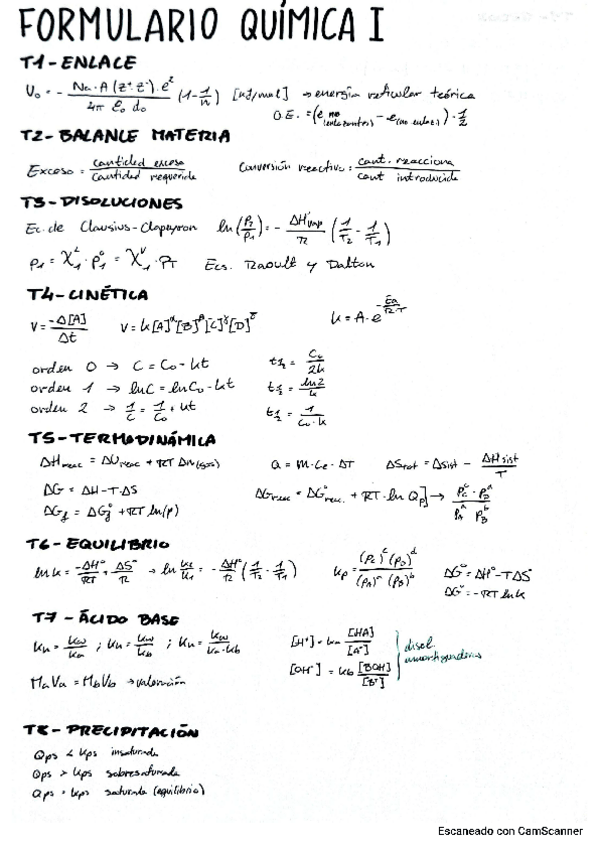 FORMULARIO QUÍMICA I
T1-ENLACE
U₀ = - Na·A (z⁺·z⁻)·e² / 4π ε₀ d₀ (1 - 1/n) [kJ/mol] → energía reticular teórica
O.E. = (e no enlazantes) · 1/2
T2-BALANCE MATERIA
Exceso = cantidad exceso / cantidad requerida Conversión reactivo = cant. reacciona / cant introducida
T3-DISOLUCIONES
Ec. de Clausius-Clapeyron ln(P₂/P₁) = - ΔH°vap / R (1/T₂ - 1/T₁)
P₁ = X₁ᴸ · P₁° = X₁ⱽ · PT Ecs. Raoult y Dalton
T4-CINÉTICA
V = -Δ[A] / Δt V = k[A]^α[B]^β[C]^γ[D]^δ k = A·e^(-Ea/R·T)
orden 0 → C = C₀ - kt t½ = C₀/2k
orden 1 → lnC = lnC₀ - kt t½ = ln2/k
orden 2 → 1/C = 1/C₀ + kt t½ = 1/C₀·k
T5-TERMODINÁMICA
ΔHreac = ΔUreac + RTΔn(gas) Q = m·Ce·ΔT ΔStot = ΔSist - ΔHsist/T
ΔG = ΔH - T·ΔS ΔGreac = ΔG°reac. + RT·ln Qp → Pc^c · PD^d / PA^a PB^b
ΔGf = ΔGf° + RT ln(p)
T6-EQUILIBRIO
lnk = -ΔH°/RT + ΔS°/R → ln k₂/k₁ = - ΔH°/R (1/T₂ - 1/T₁) kp = (Pc)^c (PD)^d / (PA)^a (PB)^b ΔG° = ΔH° - TΔS°
ΔG° = -RT lnk
T7-ÁCIDO BASE
Kh = Kw/Ka ; Kh = Kw/Kb ; Kh = Kw/Ka·Kb [H⁺] = Ka [HA]/[A⁻] disol.
[OH⁻] = Kb [BOH]/[B⁺] amortiguadoras
MaVa = MbVb → valoración
T8-PRECIPITACIÓN
Qps < Kps insaturada
Qps > Kps sobresaturada
Qps = Kps saturada (equilibrio)
Escaneado con CamScanner